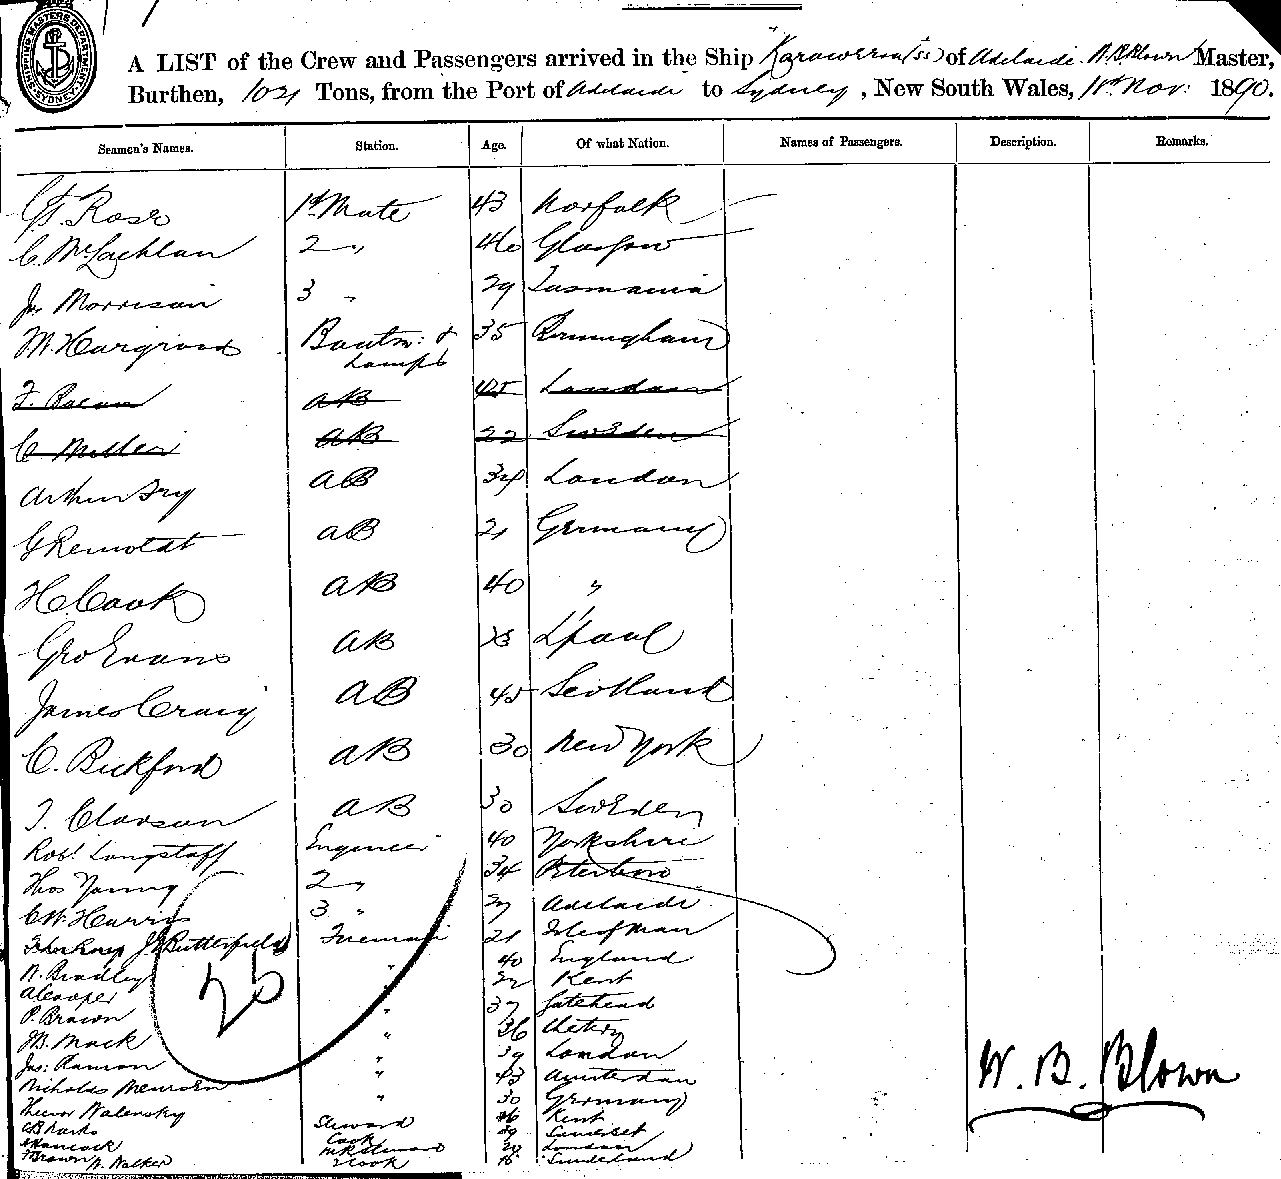 SHIPPING MASTERS DEPARTMENT SYDNEY
A LIST of the Crew and Passengers arrived in the Ship "Karaweera (ss) of Adelaide. W.B. Blown Master,
Burthen, 1021 Tons, from the Port of Adelaide to Sydney, New South Wales, 11th Nov: 1890.
Seamen's Names. Station. Age. Of what Nation. Names of Passengers. Description. Remarks.
Rose 1st Mate 43 Norfolk
C. McLachlan 2 " 46 Glasgow
Jas Morrison 3 " 29 Tasmania
M. Hargrood Boatn: & Lamps 35 Birmingham
F. Bacon AB 45 London
C Miller AB 22 Sweden
Arthur Fry AB 34 London
G Remoldt AB 21 Germany
H. Cook AB 40 "
Geo Evans AB L'pool
James Craig AB 45 Scotland
C. Bickford AB 30 New York
T. Clavson AB 30 Sweden
Robt Longstaff Engineer 40 Yorkshire
Thos Young 2 " 34 Peterboro
C W Harris 3 " 27 Adelaide
J Butterfield Fireman 21 Isle of Man
W. Bradley " 40 England
A Cooper " 22 Kent
P. Brown " 37 Gatehead
J B. Mack " 36
Jas: Ramon " 39 London
Nicholas " 43 Amsterdam
Walensky " 30 Germany
Steward 46 Kent
Hancock Cook 49 Somerset
Brown Steward London
W. Walker 2 Cook Sunderland
25
W. B. Blown